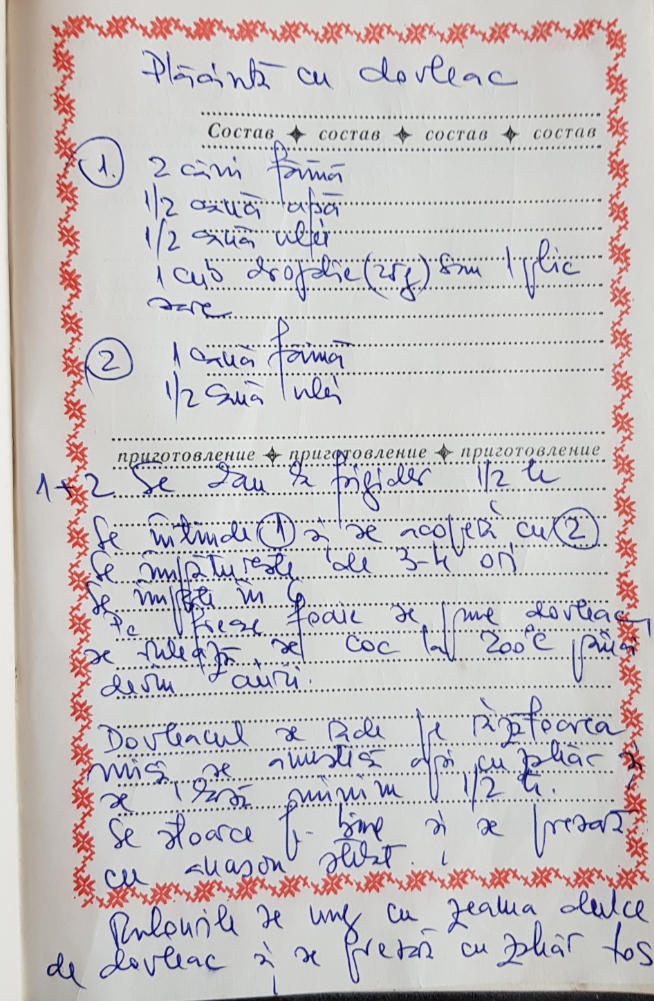 Plăcintă cu dovleac
Состав ✦ состав ✦ состав ✦ состав
1. 2 căni făină
1/2 cană apă
1/2 cană ulei
1 cub drojdie (25g) sau 1 plic
sare
2 1 cană făină
1/2 cană ulei
приготовление ✦ приготовление ✦ приготовление
1+2 Se dau la frigider 1/2 h
Se întinde 1 și se acoperă cu 2
Se împăturește de 3-4 ori
Se împarte în 6
Pe fiecare foaie se pune dovleac,
se rulează se coc la 200°C până
devin aurii.
Dovleacul se rade pe răzătoarea
mică, se amestecă apoi cu zahăr și
se lasă minim 1/2 h.
Se stoarce f. bine și se presară
cu anason stelat.
Rulourile se ung cu zeama dulce
de dovleac și se presară cu zahăr tos